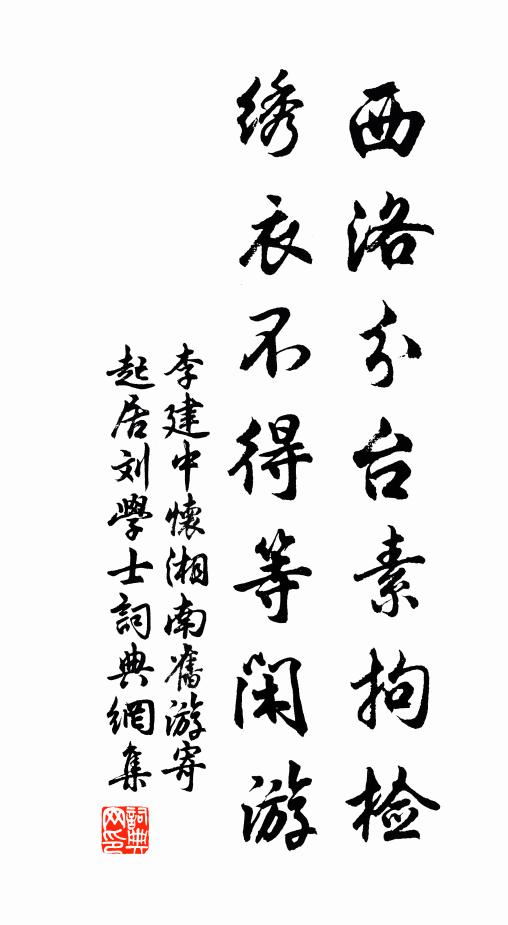 西洛分台素拘检
绣衣不得等闲游
李建中懷湘南舊游寄
起居刘學士詞典網集
詞典网印